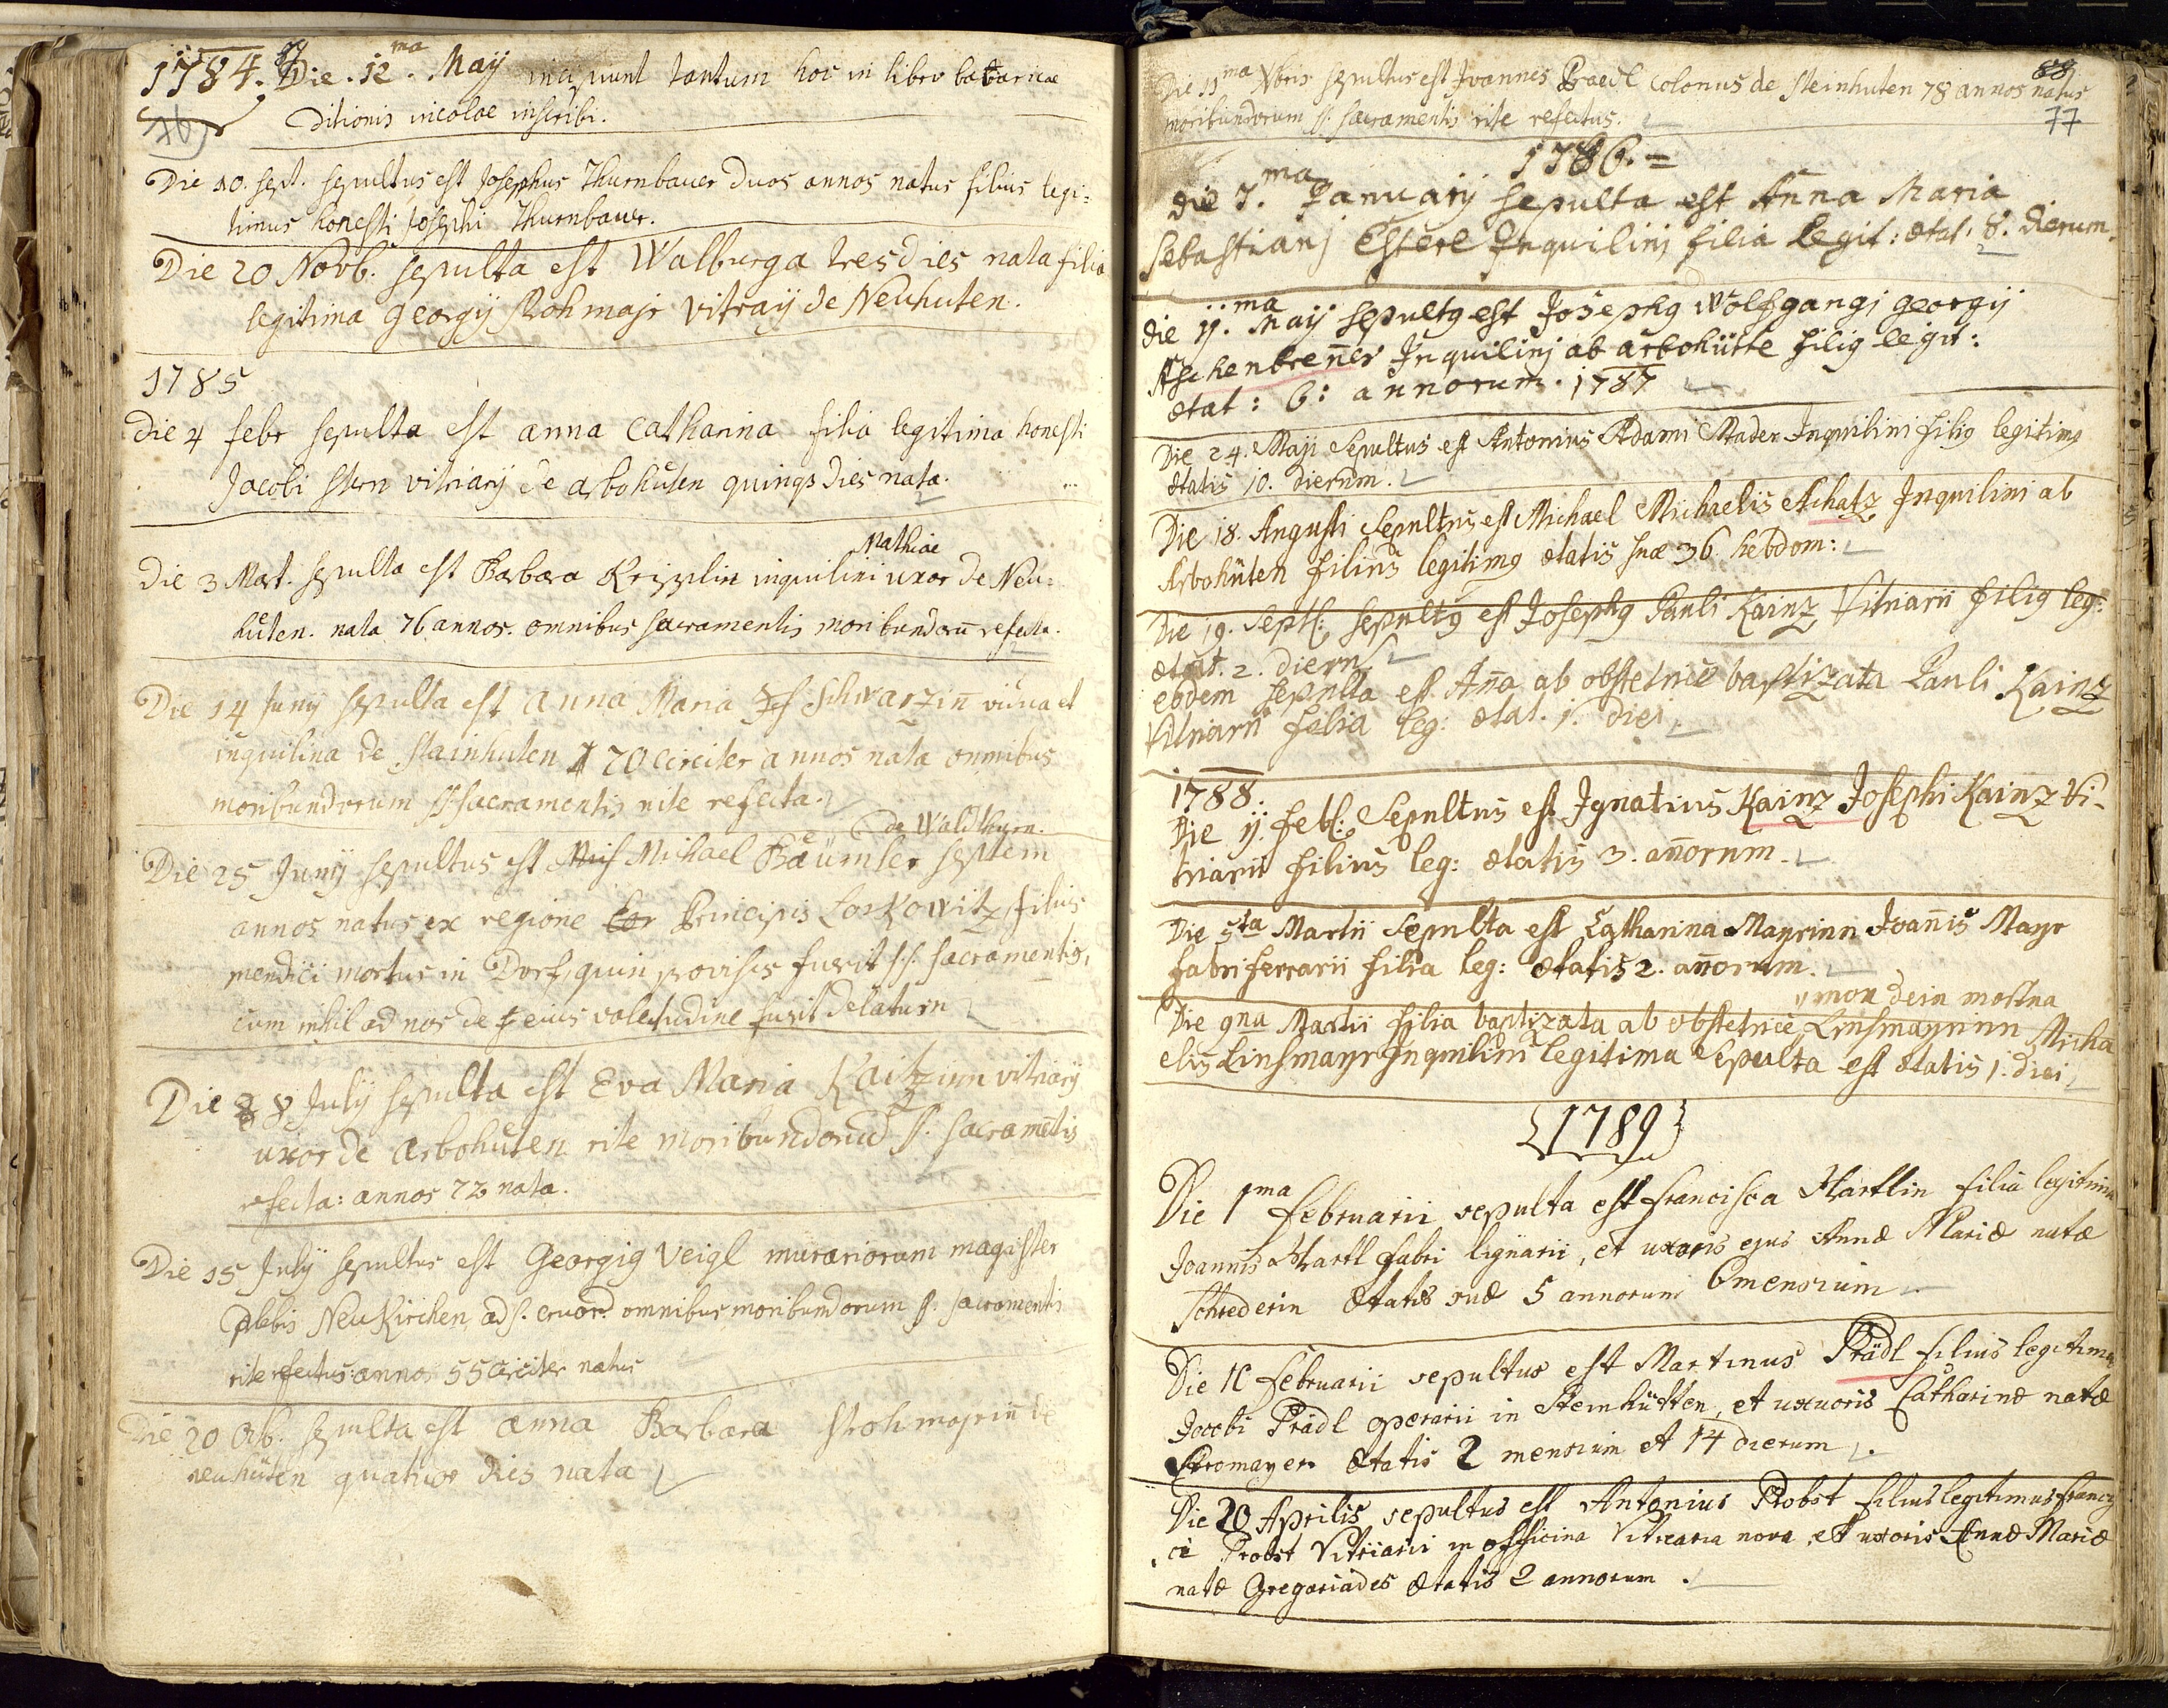 1784. Die . 12.ma May incipiunt tantum hoc in libro bavaricae
76
Ditionis incolae inscribi.
Die 10. sept. sepultus est Josephus Thurnbauer duos annos natus filius legi:
timus honesti Josephi Thurnbauer.
Die 20 Novb: sepulta est Walburga tres dies nata filia
legitima Georgij Rohmajr vitraij de Neuhuten.
1785
die 4 febr sepulta est anna Catharina filia legitima honesti
Jacobi Stern vitriarij de arbohuten quinqs dies nata.
Mathiae
die 3 Mart. sepulta est Barbara Kripplin inquilini uxor de Neu:
huten. nata 76 annos. omnibus sacramentis moribundorū refecta.
Die 14 Junij sepulta est anna Maria Schwarzin vidua et
inquilina de stainhuten 70 circiter annos nata omnibus
moribundorum SS: sacramentis rite refecta.
de Waldthurn.
Die 25 Junij sepultus est Michael Bäumler septem
annos natus ex regione Principis Loskowitz, filius
mendici mortus in Dorf, quin provisus fuerit s.s. sacramentis,
cum nihil ad nos de ejus valetudine fuerit delaturn
Die 8 Julij sepulta est Eva Maria Kaitzinn vitriarij
uxor de arbohuten rite moribundorum SS. sacramētis
refecta: annos 72 nata.
Die 15 Julij sepultus est Georgig Veigl murariorum magister
plebis NeuKirchen ad s. cruord. omnibus moribundorum SS. sacramentis
rite refectus: annos 55 circiter natus
Die 20 8b. sepulta est anna Barbara Strohmajrin de
neuhüten quatuor dies nata
Die 11ma Xbris sepultus est Joannes Praedl Colonus de Steinhuten 78 annos natus
88
77
moribundorum SS: sacramentis rite refectus.
1786. =
die 7.ma Januarij sepulta est Anna Maria
Sebastianj Esterl Inquilinj filia Legit: ætat: 8. dierum.
die 11.ma Maij sepultg est Josephg Wolfgangj georgij
Aschenbrenner Inquilinj ab arbohütte filig legit:
ætat: 6: annorum. 1787
Die 24. Maji Sepultus est Antonius Adami Mader Inquilini filig legitimg
ætatis 10. dierum.
Die 18. Augusti Sepultus est Michael Michaelis Achatz Inquilini ab
Arbohüten filius legitimg ætatis suæ 36 hebdom:
Die 19. Septb: sepultg est Josephg Pauli Kainz Vitriarii filig leg:
ætat. 2. dierū
eodem sepulta est Aña ab obstetrice baptizata Pauli Kainz
Vitriarii filia leg: ætat. 1. diei
1788.
Die 11. Feb: Sepultus est Ignatius Kainz Josephi Kainz Vi-
triarii filius leg: ætatis 3. añorum.
Die 5ta Martii Sepulta est Catharina Mayrinn Joañis Mayr
fabri ferrarii filia leg: ætatis 2. añorum.
mox dein mortua
Die 9na Martii filia baptizata ab obstetrice Linsmayrinn Micha
elis Linsmayr Inquilini legitima Sepulta est ætatis 1. diei
{1789}
Die 1ma Februarii sepulta est Francisca Hartlin filia legitima
Joannis Hartl fabri lignarii, et uxoris ejus Annæ Mariæ natæ
Schrederin ætatis suæ 5 annorum 6 mensium
Die 10 Februarii sepultus est Martinus Prädl filius legitimus
Jacobi Prädl operarii in Steinhütten, et uxoris Catharinæ natæ
Stromayer. ætatis 2 mensium et 14 dierum.
Die 20 Aprilis sepultus est Antonius Probst filius legitimus Francis
ci Probst Vitriarii in officina Vitrearia nova, et uxoris Annæ Mariæ
natæ Gregoriades ætatis 2 annorum.